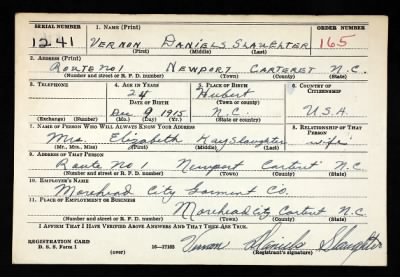 SERIAL NUMBER 1. NAME (Print) ORDER NUMBER
1241 VERNON DANIELS SLAUGHTER 165
(First) (Middle) (Last)
2. ADDRESS (Print)
ROUTE NO 1 NEWPORT CARTERET N.C.
(Number and street or R. F. D. number) (Town) (County) (State)
3. TELEPHONE 4. AGE IN YEARS 5. PLACE OF BIRTH 6. COUNTRY OF CITIZENSHIP
24 Hubert
DATE OF BIRTH (Town or county)
Dec 9 1915 N.C. U.S.A.
(Exchange) (No.) (Mo.) (Day) (Yr.) (State or country)
7. NAME OF PERSON WHO WILL ALWAYS KNOW YOUR ADDRESS 8. RELATIONSHIP OF THAT PERSON
Mrs Elizabeth Slaughter wife
(Mr., Mrs., Miss) (First) (Middle) (Last)
9. ADDRESS OF THAT PERSON
Route No 1 Newport Carteret N.C.
(Number and street or R. F. D. number) (Town) (County) (State)
10. EMPLOYER'S NAME
Morehead City Garment Co.
11. PLACE OF EMPLOYMENT OR BUSINESS
Morehead City Carteret N.C.
(Number and street or R. F. D. number) (Town) (County) (State)
I AFFIRM THAT I HAVE VERIFIED ABOVE ANSWERS AND THAT THEY ARE TRUE.
REGISTRATION CARD
D. S. S. Form 1 (over) 16—17105 Vernon Daniels Slaughter
(Registrant's signature)